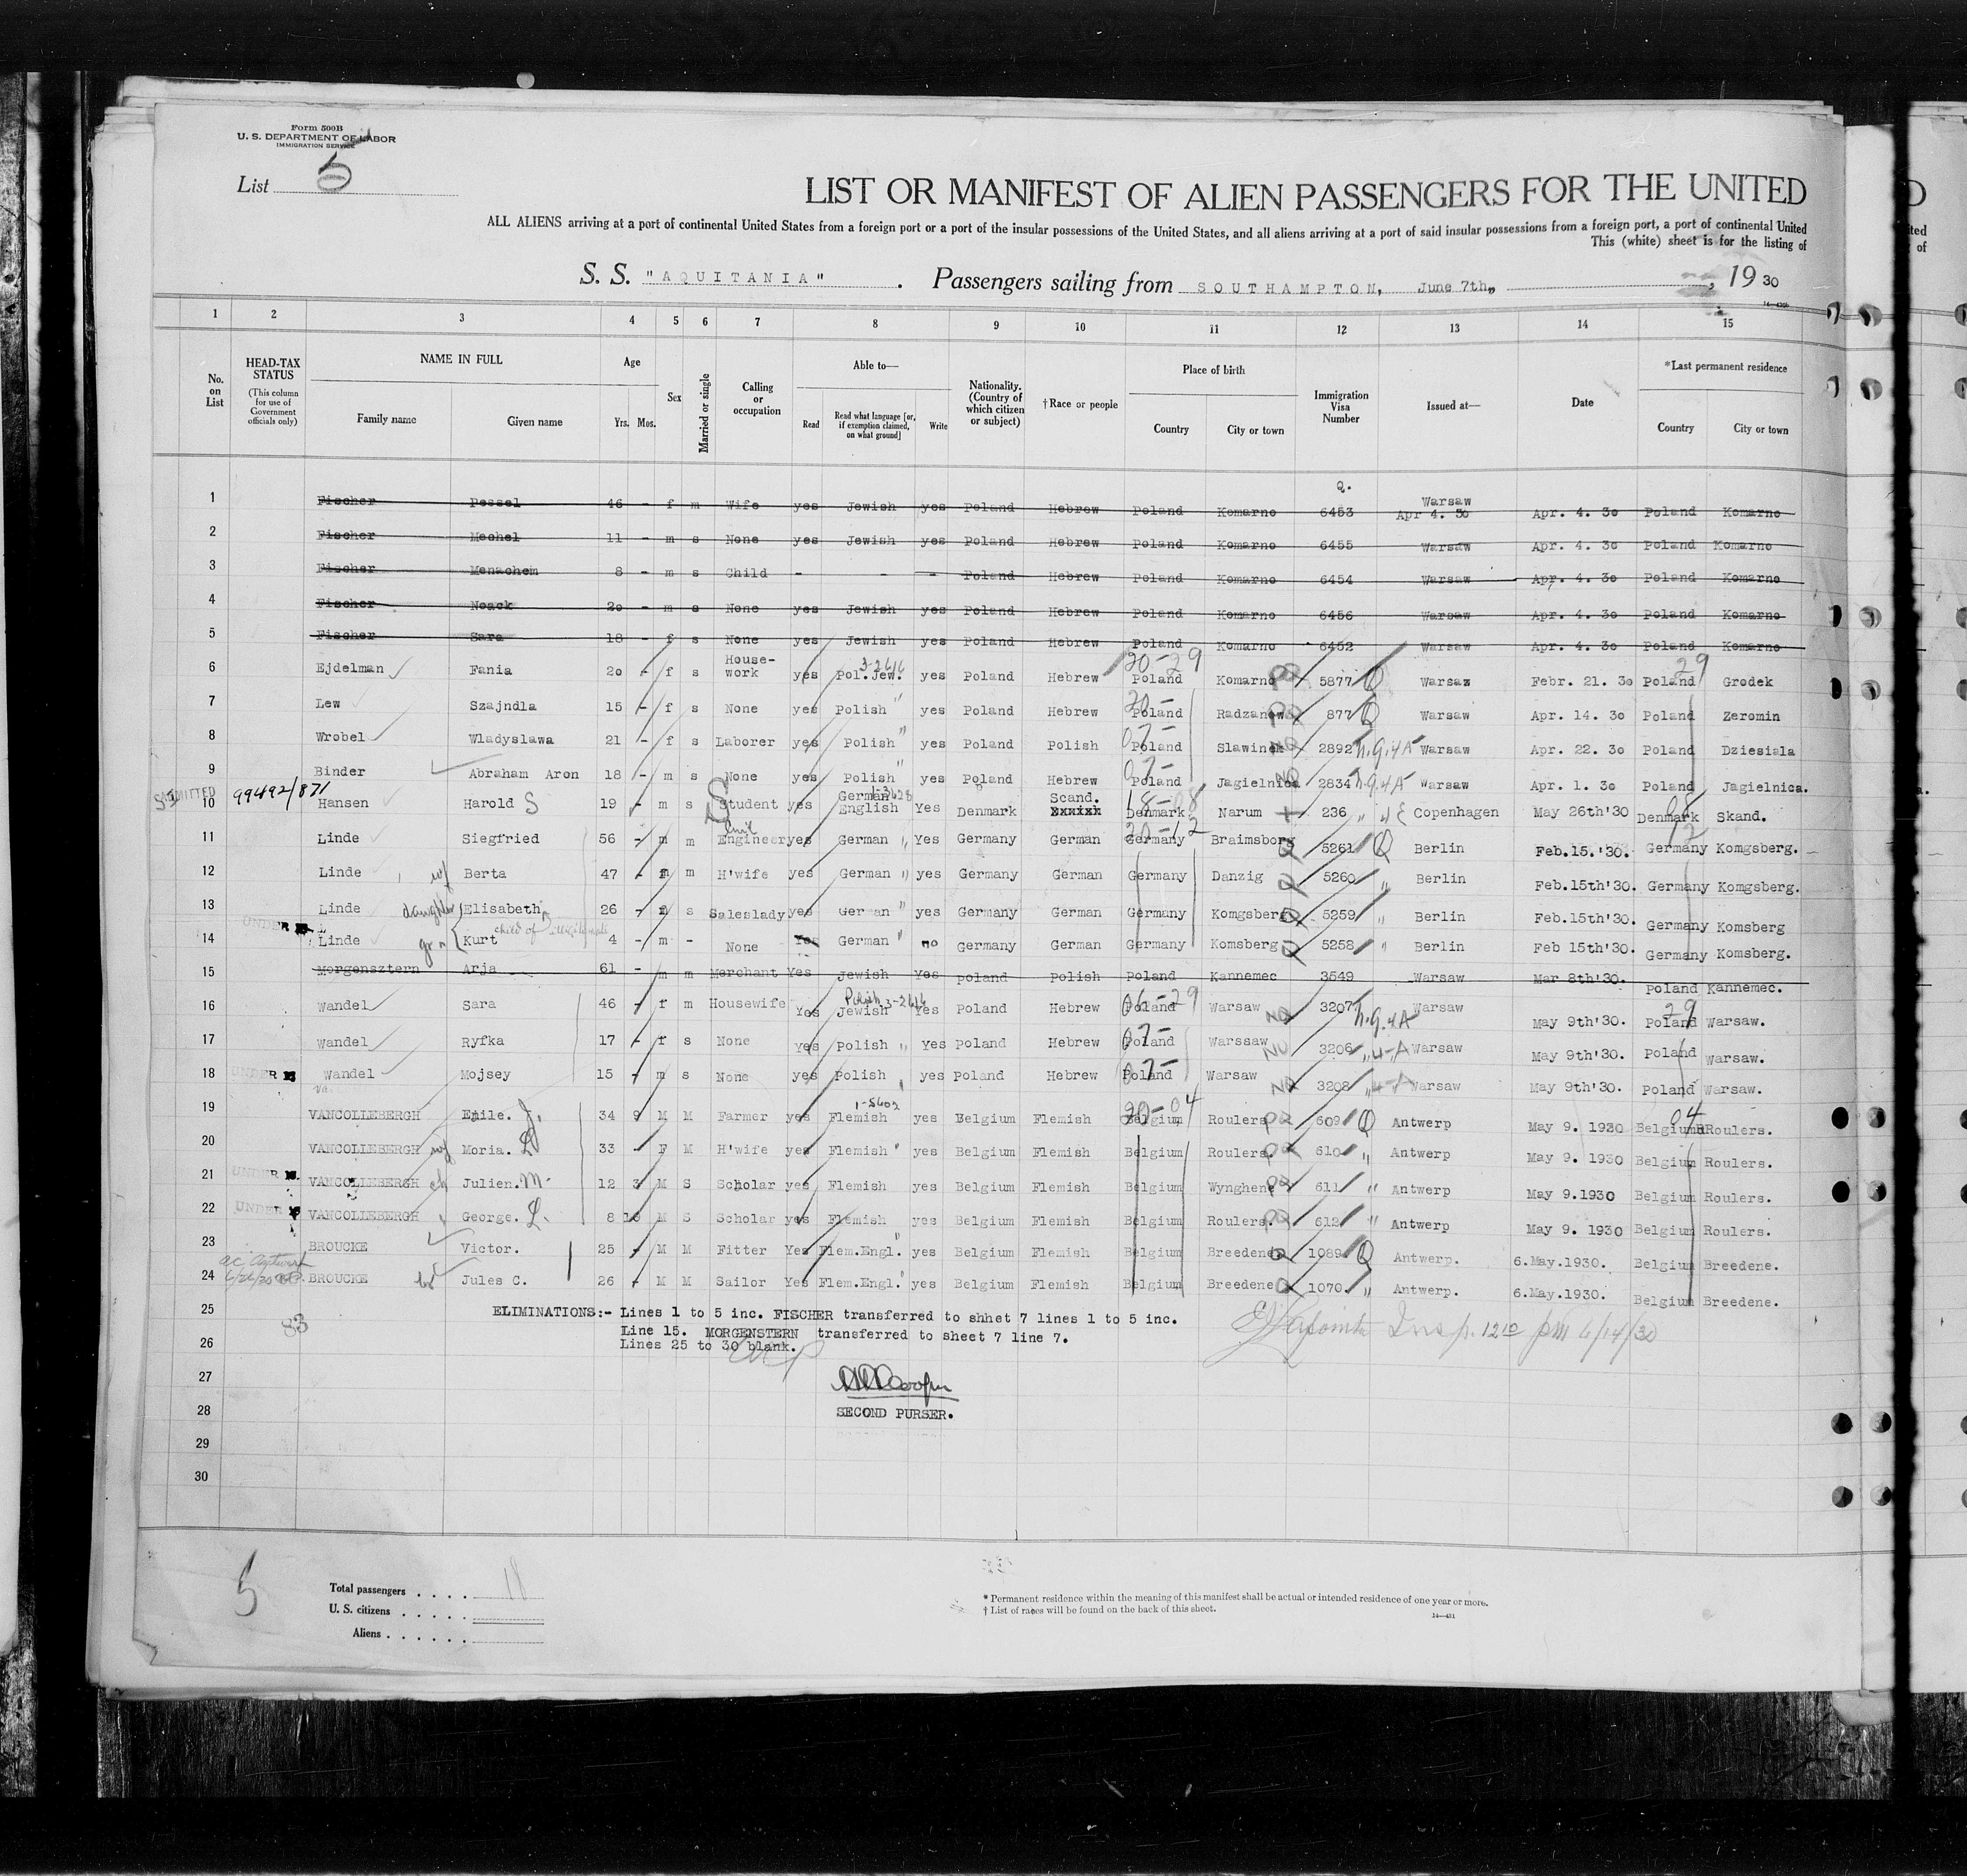 Form 500B
U. S. DEPARTMENT OF LABOR
IMMIGRATION SERVICE
List 5
LIST OR MANIFEST OF ALIEN PASSENGERS FOR THE UNITED
ALL ALIENS arriving at a port of continental United States from a foreign port or a port of the insular possessions of the United States, and all aliens arriving at a port of said insular possessions from a foreign port, a port of continental United
This (white) sheet is for the listing of
S. S. "AQUITANIA". Passengers sailing from SOUTHAMPTON, June 7th, , 19 30
1 2 3 4 5 6 7 8 9 10 11 12 13 14 15
No. on List
HEAD-TAX STATUS (This column for use of Government officials only)
NAME IN FULL Family name Given name
Age Yrs. Mos.
Sex
Married or single
Calling or occupation
Able to— Read Read what language [or, if exemption claimed, on what ground] Write
Nationality. (Country of which citizen or subject)
†Race or people
Place of birth Country City or town
Immigration Visa Number
Issued at—
Date
*Last permanent residence Country City or town
1 Fischer Pessel 46 - f m Wife yes Jewish yes Poland Hebrew Poland Komarno Q. 6453 Warsaw Apr 4. 30 Apr. 4. 30 Poland Komarno
2 Fischer Mechel 11 - m s None yes Jewish yes Poland Hebrew Poland Komarno 6455 Warsaw Apr. 4. 30 Poland Komarno
3 Fischer Menachem 8 - m s Child - - - Poland Hebrew Poland Komarno 6454 Warsaw Apr. 4. 30 Poland Komarno
4 Fischer Noack 20 - m s None yes Jewish yes Poland Hebrew Poland Komarno 6456 Warsaw Apr. 4. 30 Poland Komarno
5 Fischer Sara 18 - f s None yes Jewish yes Poland Hebrew Poland Komarno 6452 Warsaw Apr. 4. 30 Poland Komarno
6 Ejdelman Fania 20 - f s House-work yes Pol.Jew. yes Poland Hebrew 20-29 Poland Komarno 5877 Q Warsaz Febr. 21. 30 29 Poland Grodek
7 Lew Szajndla 15 - f s None yes Polish " yes Poland Hebrew 20- Poland Radzanow 877 Q Warsaw Apr. 14. 30 Poland Zeromin
8 Wrobel Wladyslawa 21 - f s Laborer yes Polish " yes Poland Polish 07- Poland Slawinek 2892 n.g.4A Warsaw Apr. 22. 30 Poland Dziesiala
9 Binder Abraham Aron 18 - m s None yes Polish " yes Poland Hebrew 07- Poland Jagielnica 2834 n.g.4A Warsaw Apr. 1. 30 Poland Jagielnica.
10 99492/871 Hansen Harold S 19 - m s Student yes German English Yes Denmark Scand. 18-08 Denmark Narum 236 " 4E Copenhagen May 26th'30 08 Denmark Skand.
11 Linde Siegfried 56 - m m Engineer yes German " Yes Germany German 20-12 Germany Braimsborg 5261 Q Berlin Feb.15.'30. 12 Germany Komgsberg.
12 Linde wf Berta 47 - m m H'wife yes German " yes Germany German Germany Danzig 5260 " Berlin Feb.15th'30. Germany Komgsberg.
13 Linde daughter Elisabeth 26 - s Saleslady yes German " yes Germany German Germany Komgsberg 5259 " Berlin Feb.15th'30. Germany Komgsberg
14 UNDER Linde Kurt child of 4 - m - None Yes German " no Germany German Germany Komsberg 5258 " Berlin Feb 15th'30. Germany Komsberg.
15 Morgensztern Arja 61 - m m Merchant Yes Jewish Yes poland Polish Poland Kannemec 3549 Warsaw Mar 8th'30. Poland Kannemec.
16 Wandel Sara 46 - f m Housewife Yes Polish Jewish Yes Poland Hebrew 06-29 Poland Warsaw 3207 n.g.4A Warsaw May 9th'30. 29 Poland Warsaw.
17 Wandel Ryfka 17 - f s None Yes Polish " Yes Poland Hebrew 07- Poland Warssaw 3206 " 4-A Warsaw May 9th'30. Poland Warsaw.
18 UNDER Wandel Mojsey 15 - m s None yes Polish yes Poland Hebrew 07- Poland Warsaw 3208 " 4-A Warsaw May 9th'30. Poland Warsaw.
19 VANCOLLEBERGH Emile. J. 34 9 M M Farmer yes Flemish yes Belgium Flemish 20-04 Belgium Roulers 609 Q Antwerp May 9. 1930 04 Belgium Roulers.
20 VANCOLLEBERGH wf Moria. L 33 - F M H'wife yes Flemish " yes Belgium Flemish Belgium Roulers. 610 " Antwerp May 9. 1930 Belgium Roulers.
21 UNDER VANCOLLEBERGH ch Julien. M. 12 3 M S Scholar yes Flemish yes Belgium Flemish Belgium Wynghene 611 " Antwerp May 9.1930 Belgium Roulers.
22 UNDER VANCOLLEBERGH George. L. 8 10 M S Scholar yes Flemish yes Belgium Flemish Belgium Roulers. 612 " Antwerp May 9. 1930 Belgium Roulers.
23 BROUCKE Victor. 25 - M M Fitter Yes Flem.Engl. " yes Belgium Flemish Belgium Breedene 1089 Q Antwerp. 6.May.1930. Belgium Breedene.
24 BROUCKE Jules C. 26 - M M Sailor Yes Flem.Engl. " yes Belgium Flemish Belgium Breedene 1070 " Antwerp. 6.May.1930. Belgium Breedene.
25 ELIMINATIONS:- Lines 1 to 5 inc. FISCHER transferred to shhet 7 lines 1 to 5 inc.
Line 15. MORGENSTERN transferred to sheet 7 line 7.
26 Lines 25 to 30 blank.
Insp. 12 10 pm 6/14/30
83
27
28 SECOND PURSER.
29
30
5
Total passengers . . . . 18
U. S. citizens . . . . .
Aliens . . . . . .
* Permanent residence within the meaning of this manifest shall be actual or intended residence of one year or more.
† List of races will be found on the back of this sheet.
14—431